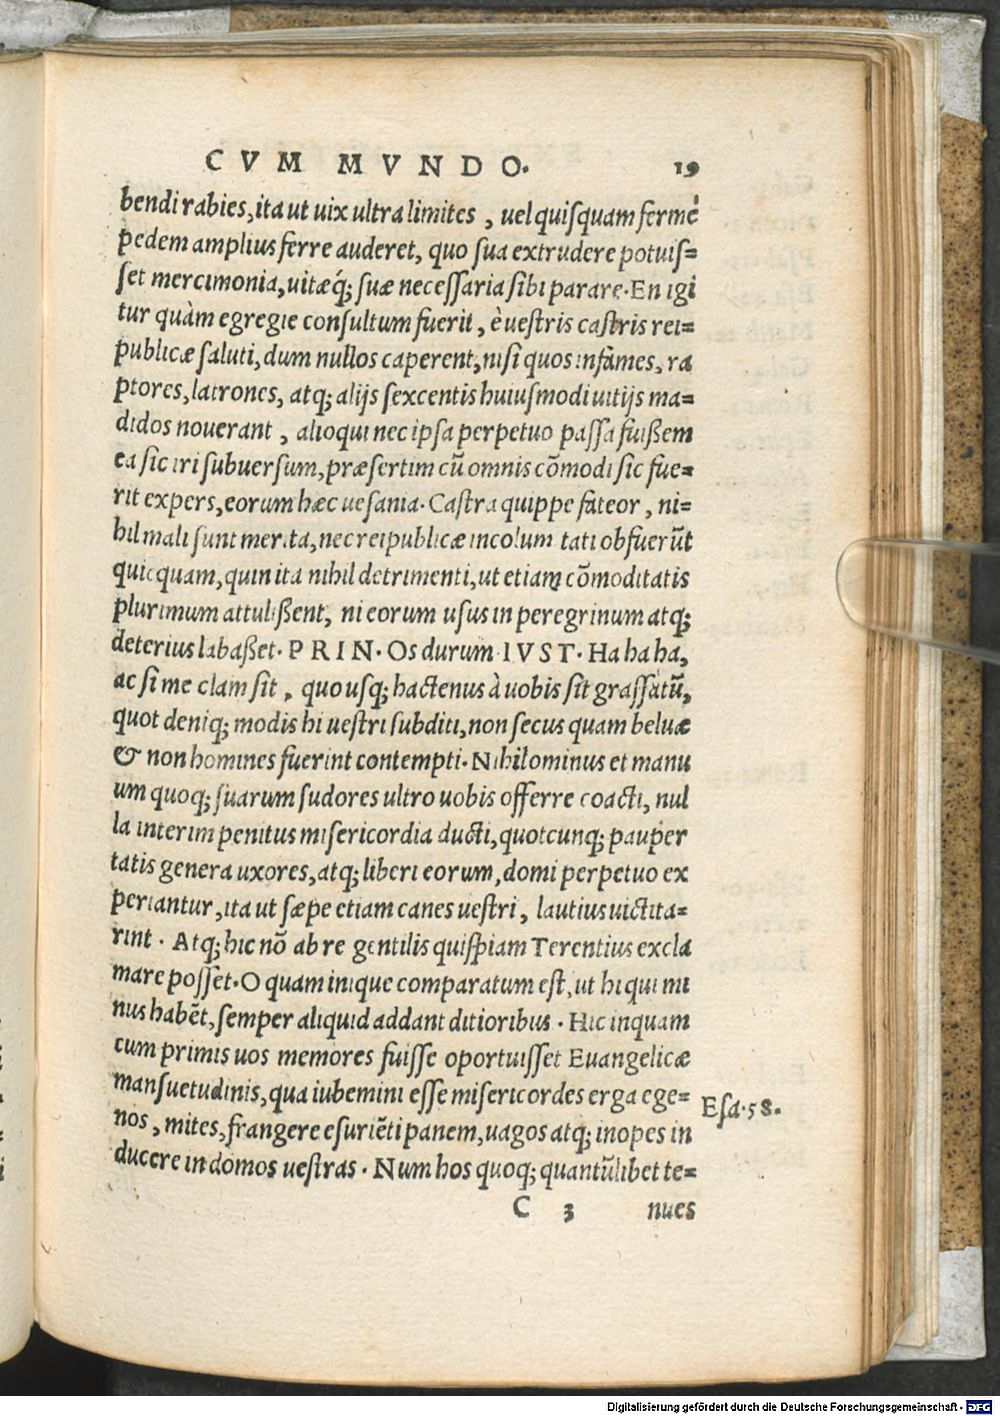 CVM MVNDO. 19
bendi rabies, ita ut uix ultra limites, uel quiſquam fermè
pedem amplius ferre auderet, quo ſua extrudere potuiſ=
ſet mercimonia, uitæq́; ſuæ neceſſaria ſibi parare. En igi
tur quàm egregie conſultum fuerit, è ueſtris caſtris rei=
publicæ ſaluti, dum nullos caperent, niſi quos infames, ra
ptores, latrones, atq; alijs ſexcentis huiuſmodi uitijs ma=
didos nouerant, alioqui nec ipſa perpetuo paſſa fuißem
ea ſic iri ſubuerſum, præſertim cũ omnis cõmodi ſic fue=
rit expers, eorum hæc ueſania. Caſtra quippe fateor, ni=
hil mali ſunt merita, nec reipublicæ incolum tati obfuerũt
quicquam, quin ita nihil detrimenti, ut etiam cõmoditatis
plurimum attulißent, ni eorum uſus in peregrinum atq;
deterius labaßet. PRIN. Os durum. IVST. Ha ha ha,
ac ſi me clam ſit, quouſq; hactenus à uobis ſit graſſatũ,
quot deniq; modis hi ueſtri ſubditi, non ſecus quam beluæ
& non homines fuerint contempti. Nihilominus et manu
um quoq; ſuarum ſudores ultro uobis offerre coacti, nul
la interim penitus miſericordia ducti, quotcunq; pauper
tatis genera uxores, atq; liberi eorum, domi perpetuo ex
periantur, ita ut ſæpe etiam canes ueſtri, lautius uictita=
rint. Atq; hic nõ ab re gentilis quiſpiam Terentius excla
mare poſſet. O quam inique comparatum eſt, ut hi qui mi
nus habẽt, ſemper aliquid addant ditioribus. Hic inquam
cum primis uos memores fuiſſe oportuiſſet Euangelicæ
manſuetudinis, qua iubemini eſſe miſericordes erga ege=
Eſa. 58.
nos, mites, frangere eſuriẽti panem, uagos atq; inopes in
ducere in domos ueſtras. Num hos quoq; quantũlibet te=
C 3 nues
Digitalisierung gefördert durch die Deutsche Forschungsgemeinschaft - DFG